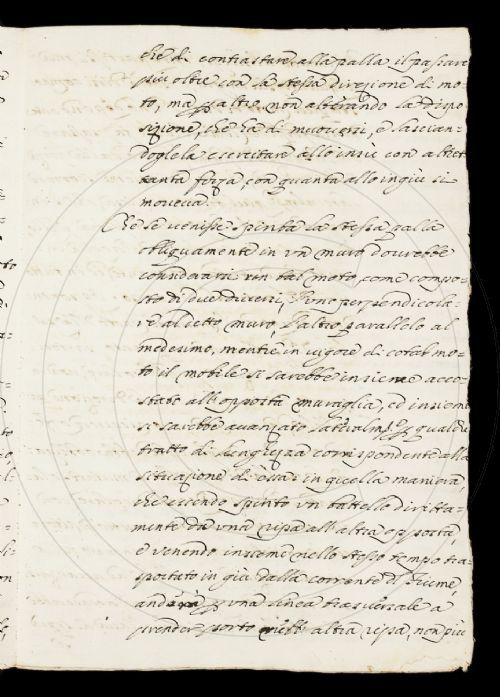 che di contrastare alla palla il passare
più oltre con la stessa direzione di mo-
to, ma per altro non alterando la dispo
sizione, che ha di muoversi, e lascian-
dogliela esercitare allo insù con altret
tanta forza, con quanta allo ingiù si
moveva.
Che se venisse spinta la stessa palla
obliquamente in un muro, dovrebbe
considerarsi un tal moto, come compo-
sto di due diversi, l'uno perpendicola-
re al detto muro, l'altro parallelo al
medesimo, mentre in vigore di cotal mo-
to il mobile si sarebbe insieme acco-
stato all'opposta muraglia, ed insieme
si sarebbe avanzato lateralm.te per qualche
tratto di lunghezza corrispondente alla
situazione di essa; in quella maniera,
che essendo spinto un battello diritta-
mente da una ripa all'altra opposta,
e venendo insieme nello stesso tempo tra-
sportato in giù dalla corrente di fiume,
anderà per una linea trasversale a
prender porto nell'altra ripa, non più